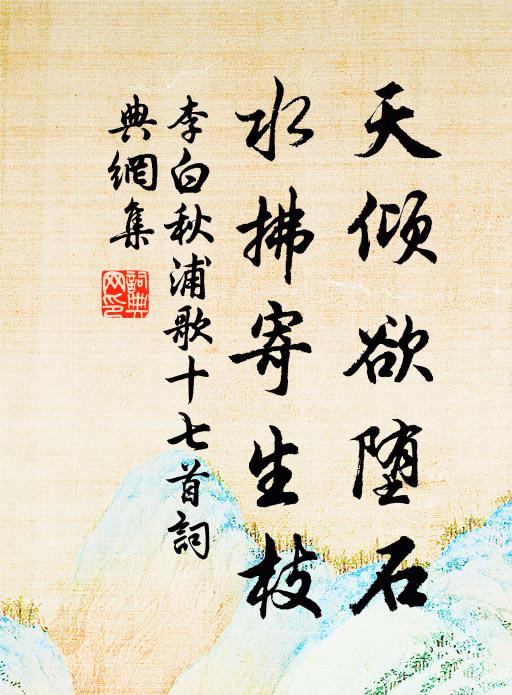 天傾欲堕石
水拂寄生枝
李白秋浦歌十七首詞
典網集
詞典
网印